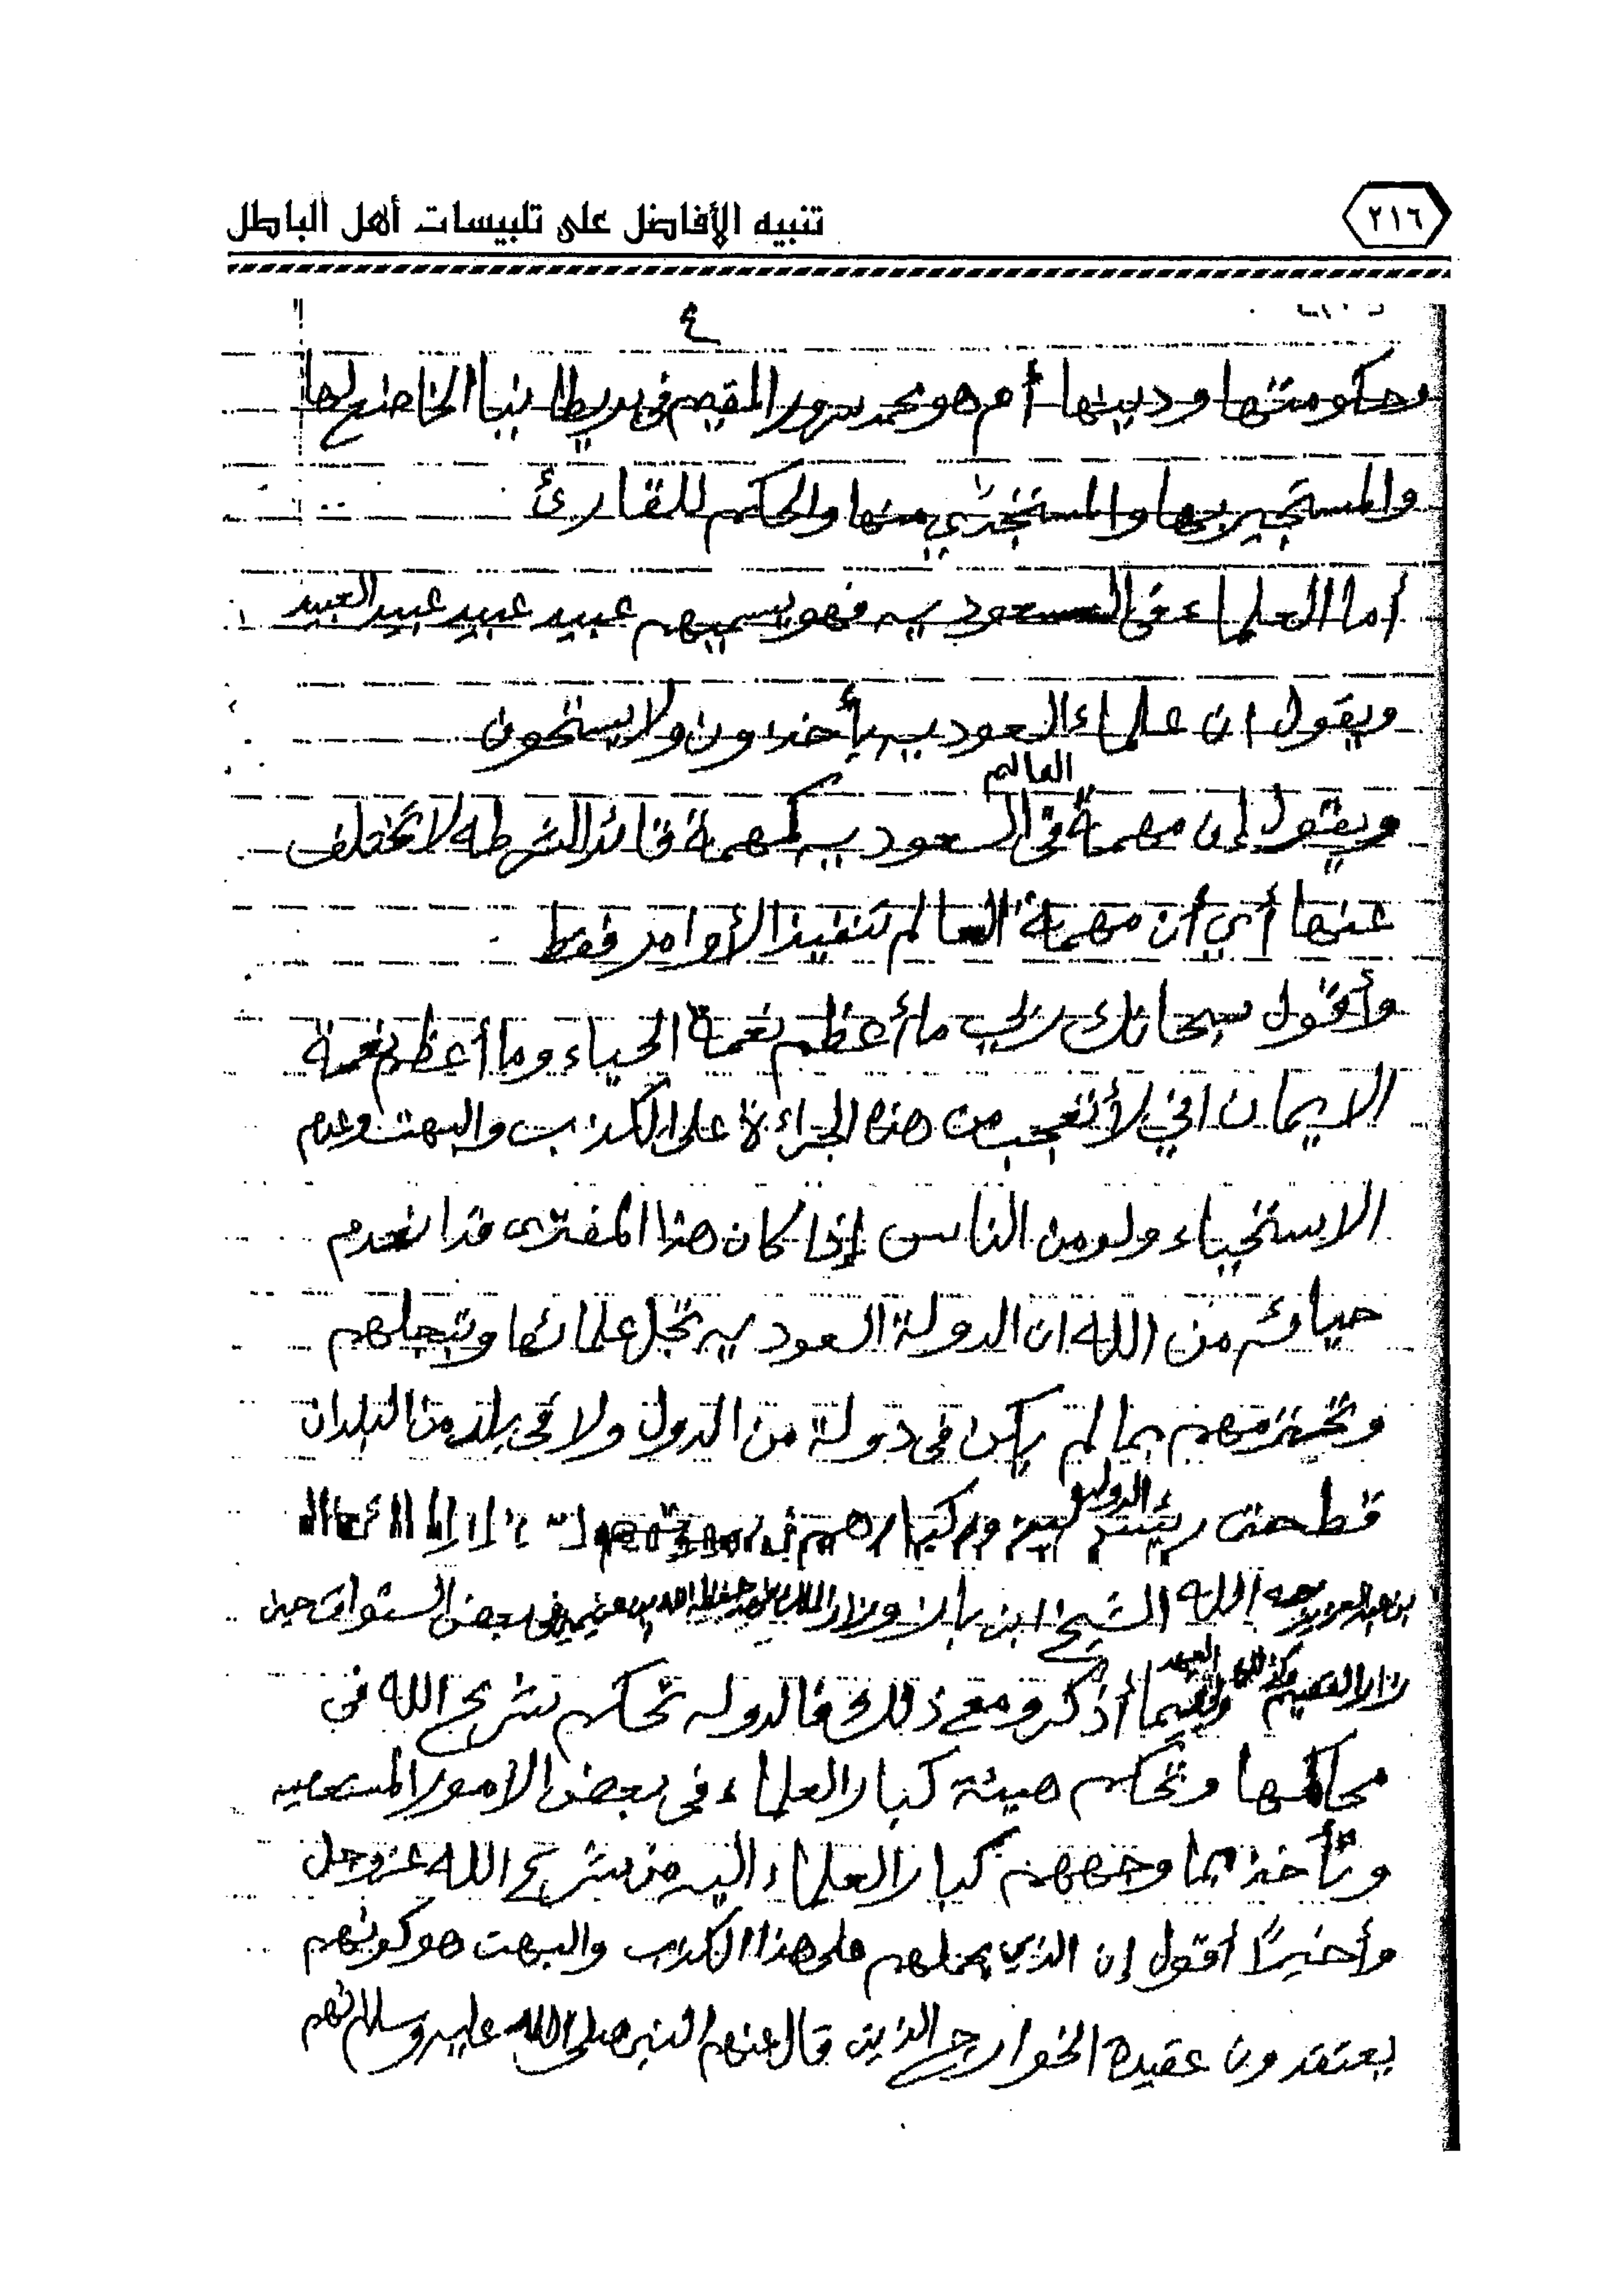 ٢١٦
تنبيه الأفاضل على تلبيسات أهل الباطل
٤
وحكومتها ودينها أم هو محمد سرور المقيم في بريطانيا الخاضع لها
والمستجير بها والمستخذي منها والحكم للقارئ
أما العلماء في السعوديه فهو يسميهم عبيد عبيد عبيد العبيد
ويقول ان علماء السعوديه يأخذون ولا يستحون
ويقول إن مهمة العالم في السعوديه كمهمة قائد الشرطه لا تختلف
عنها أي أن مهمة العالم تنفيذ الأوامر فقط
وأقول سبحانك ربي ما أعظم نعمة الحياء وما أعظم نعمة
الايمان اني لأتعجب من هذه الجراءة على الكذب والبهت وعدم
الاستحياء ولو من الناس إذا كان هذا المفتري قد انعدم
حيائه من الله ان الدولة السعوديه تجل علمائها وتبجلهم
وتحترمهم بما لم يكن في دولة من الدول ولا في بلد من البلدان
قط حتى
رحمه الله الشيخ ابن باز وزار الملك بن عثيمين في بعض السنوات حين
زار القصيم ولي العهد فيما أذكر ومع ذلك فالدوله تحكم شرع الله في
محاكمها وتحكم هيئة كبار العلماء في بعض الامور المستعصيه
وتأخذ بما وجههم كبار العلماء اليه من شرع الله عز وجل
وأخيرًا أقول إن الذي يحملهم على هذا الكذب والبهت هو كونهم
يعتقدون عقيدة الخوارج الذين قال عنهم النبي صلى الله عليه وسلم انهم